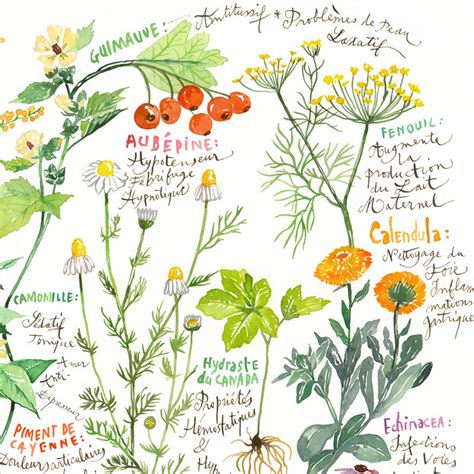 GUIMAUVE:
Antitussif * Problèmes de Peau
Laxatif
AUBÉPINE:
Hypotenseur
Fébrifuge
Hypnotique
FENOUIL:
Augmente
la
production
du Lait
Maternel
Calendula:
Nettoyage du
Foie
Inflam
mations
Gastriques
CAMOMILLE:
Sédatif
Tonique
Amer
Anti
Hydraste
du CANADA
Propriétés
Hémostatiques
&
Hyp
PIMENT DE
CAYENNE:
Douleurs articulaires
Echinacea:
Infections
des Voies